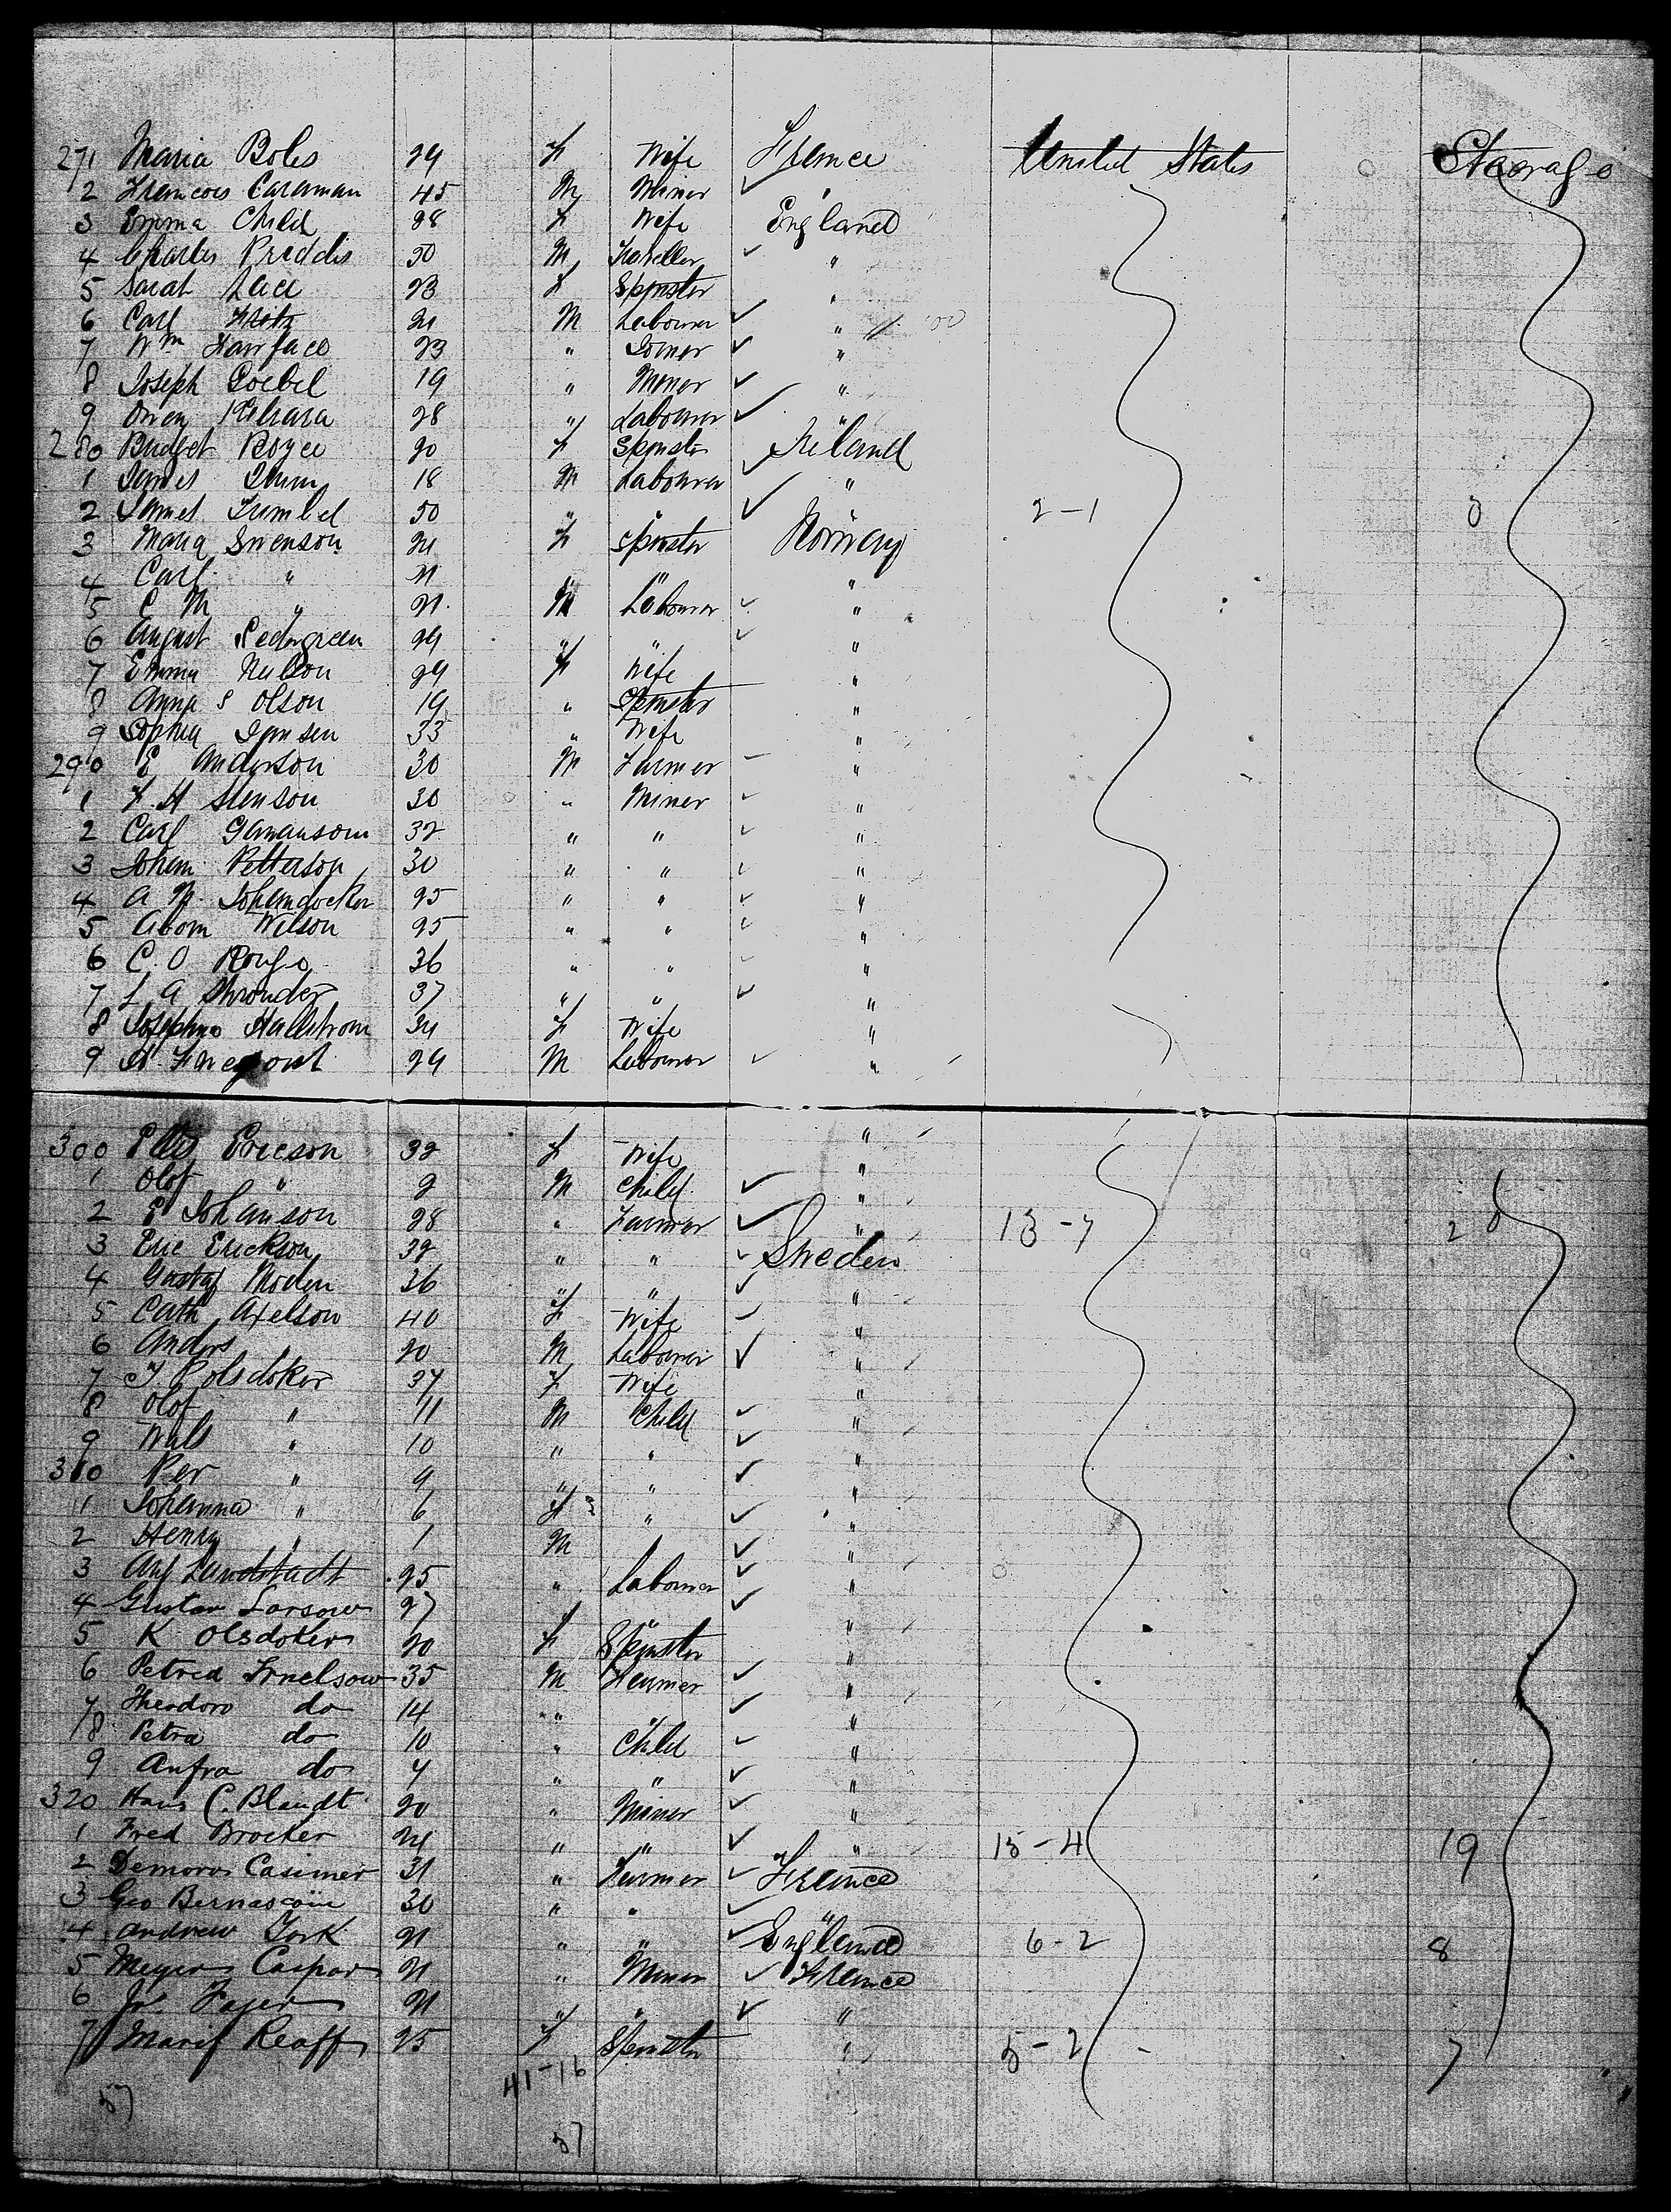 271 Maria Boles 29 F Wife France United States Steerage
2 Francois Caraman 45 M Miner "
3 Emma Child 28 F Wife England
4 Charles Priddis 30 M Traveller "
5 Sarah 23 F Spinster "
6 Carl Fritz 21 M Labourer "
7 Wm Fairface 23 " Joiner "
8 Joseph Goebel 19 " Miner "
9 Owen 28 " Labourer "
280 Bridget Boyce 20 F Spinster Ireland
1 James 18 M Labourer "
2 James Trumbel 50 " " " 2-1 3
3 Maria Swenson 21 F Spinster Norway
4 Carl " 21 " " "
5 C M " 21 M Labourer "
6 August Sedergreen 29 " " "
7 Emma Nelson 29 F Wife "
8 Anna S Olson 19 " Spinster "
9 Sophia Jonsen 33 " Wife "
290 E Anderson 30 M Farmer "
1 F. H Stenson 30 " Miner "
2 Carl 32 " " "
3 Johan Petterson 30 " " "
4 A M. 25 " " "
5 Wilson 25 " " "
6 C. O 36 " " "
7 L A Shrouder 37 " " "
8 Josephine Hallstrom 24 F Wife "
9 29 M Labourer "
300 Ericson 32 F Wife "
1 Olof " 2 M Child "
2 E Johanson 28 " Farmer " 13-7 20
3 Eric Erickson 32 " " Sweden
4 Gustaf Moden 36 " " "
5 Cath Axelson 40 F Wife "
6 Anders 20 M Labourer "
7 37 F Wife "
8 Olof " 11 M Child "
9 " 10 " " "
310 Per " 9 " " "
1 Johanna " 6 F " "
2 Henry " 1 M "
3 Lundstadt 25 " Labourer "
4 Gustav Larsow 27 "
5 K Olsdoker 20 F Spinster "
6 Petrea 35 M Farmer "
7 Theodore do 14 " " "
8 Petra do 10 " Child "
9 Anfra do 4 " " "
320 Hans C. Blandt 20 " Miner "
1 Fred Brocker 24 " " " 15-4 19
2 Demoros Casimer 31 " Farmer France
3 Geo Bernasconi 30 " " "
4 Andrew York 21 " " England 6-2 8
5 Meyer Caspar 21 " Miner France
6 21 " " "
7 Reaff 25 F Spinster " 5-2 7
41-16
57
57